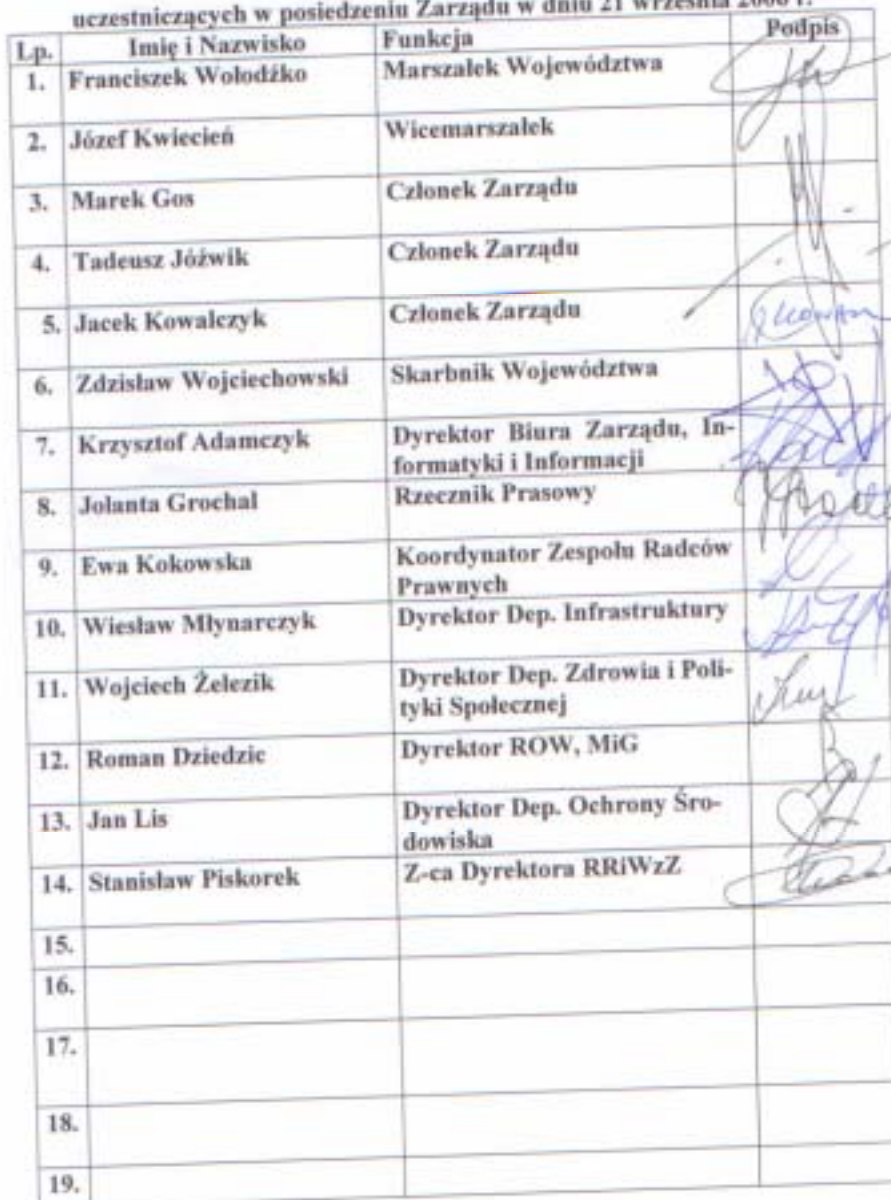 uczestniczących w posiedzeniu Zarządu w dniu 21 września 2006 r.
Lp. Imię i Nazwisko Funkcja Podpis
1. Franciszek Wołodźko Marszałek Województwa
2. Józef Kwiecień Wicemarszałek
3. Marek Gos Członek Zarządu
4. Tadeusz Jóźwik Członek Zarządu
5. Jacek Kowalczyk Członek Zarządu
6. Zdzisław Wojciechowski Skarbnik Województwa
7. Krzysztof Adamczyk Dyrektor Biura Zarządu, In-
formatyki i Informacji
8. Jolanta Grochal Rzecznik Prasowy
9. Ewa Kokowska Koordynator Zespołu Radców
Prawnych
10. Wiesław Młynarczyk Dyrektor Dep. Infrastruktury
11. Wojciech Żelezik Dyrektor Dep. Zdrowia i Poli-
tyki Społecznej
12. Roman Dziedzic Dyrektor ROW, MiG
13. Jan Lis Dyrektor Dep. Ochrony Śro-
dowiska
14. Stanisław Piskorek Z-ca Dyrektora RRiWzZ
15.
16.
17.
18.
19.